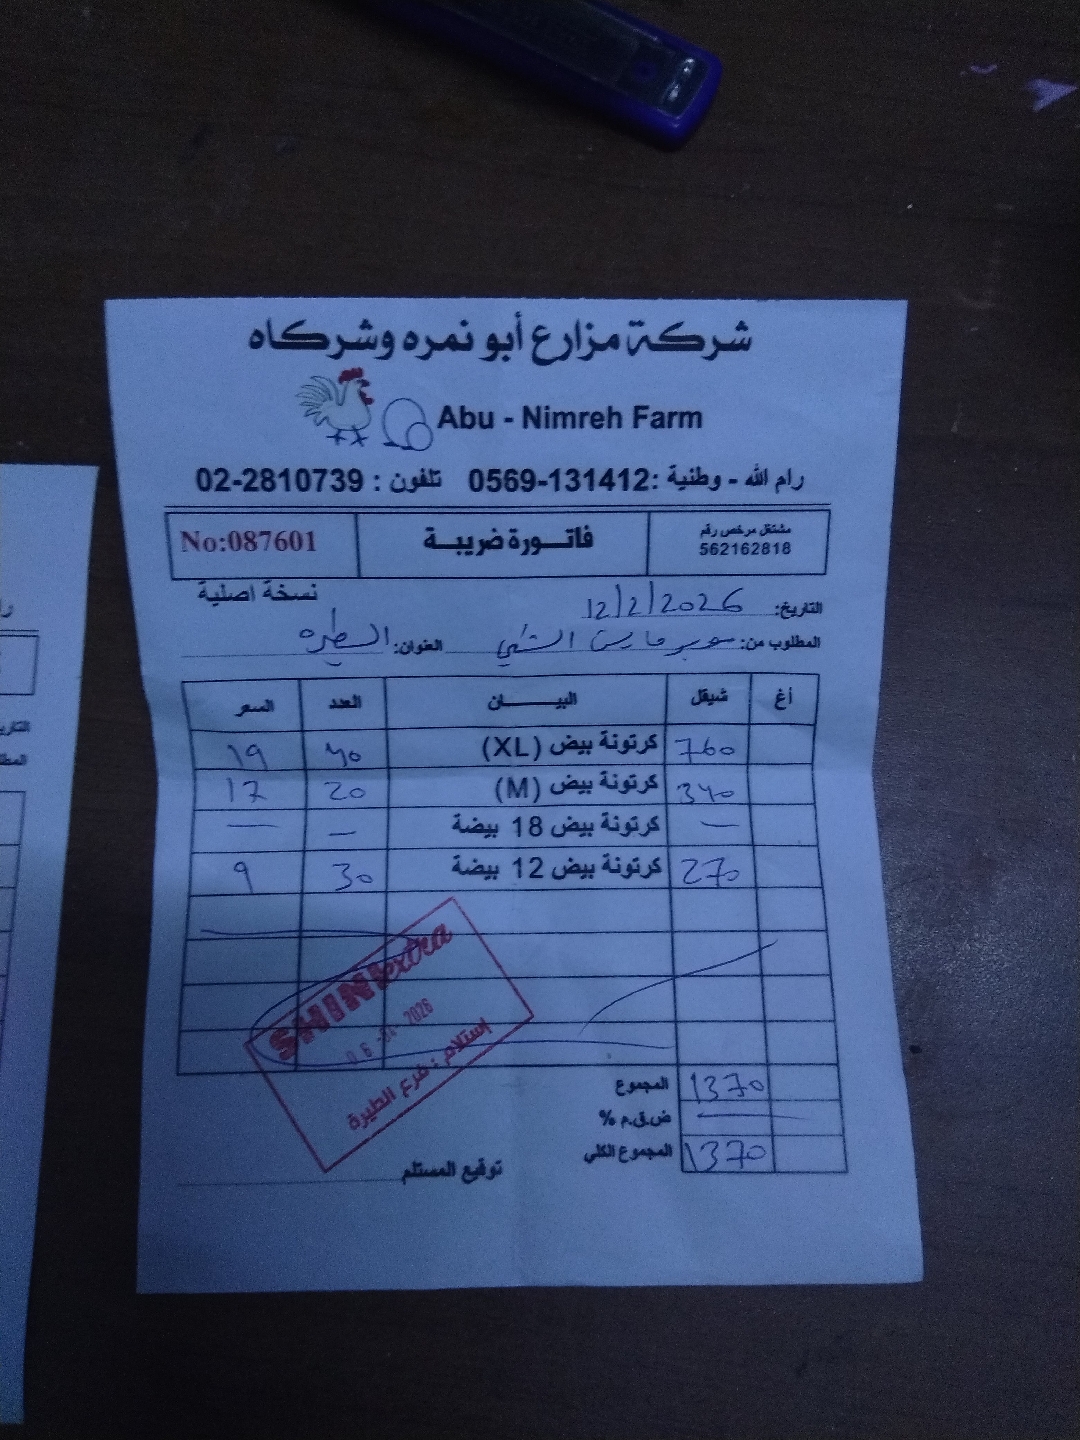 شركة مزارع أبو نمره وشركاه
Abu - Nimreh Farm
رام الله - وطنية :0569-131412 تلفون : 02-2810739
مشتغل مرخص رقم
562162818
فاتورة ضريبة
No:087601
نسخة اصلية
التاريخ: 12/2/2026
المطلوب من: سوبر ماركت العنوان:
أغ شيقل البيان العدد السعر
760 كرتونة بيض (XL) 40 19
340 كرتونة بيض (M) 20 17
— كرتونة بيض 18 بيضة — —
270 كرتونة بيض 12 بيضة 30 9
SHINI extra
2026
إستلام : فرع الطيرة
المجموع 1370
ض.ق.م %
المجموع الكلي 1370
توقيع المستلم
التاري
المط